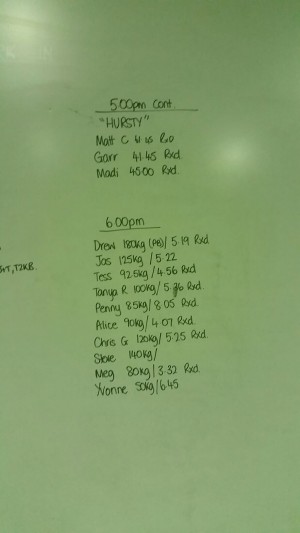 5:00pm Cont.
"HURSTY"
Matt C 41.45 RxD
Garr 41.45 Rxd.
Madi 45.00 Rxd.
6:00pm
Drew 180kg (PB)/ 5.19 Rxd.
Jas 125kg / 5.22
Tess 92.5kg / 4.56 Rxd.
Tanya R 100kg / 5.36 Rxd.
Penny 85kg / 8.05 Rxd.
Alice 90kg / 4.07 Rxd.
Chris G 120kg / 5.25 Rxd.
Steve 140kg /
Meg 80kg / 3.32 Rxd.
Yvonne 50kg / 6.45